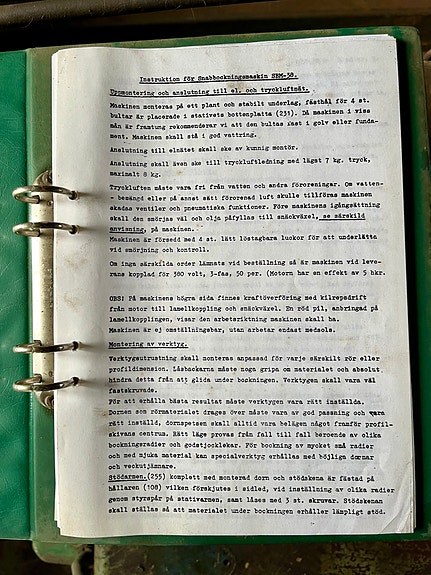 Instruktion för Snabbockningsmaskin SBM-38.
Uppmontering och anslutning till el. och tryckluftnät.
Maskinen monteras på ett plant och stabilt underlag, fästhål för 4 st.
bultar är placerade i stativets bottenplatta (231). Då maskinen i viss
mån är framtung rekommenderar vi att den bultas fast i golv eller funda-
ment. Maskinen skall stå i god vattring.
Anslutning till elnätet skall ske av kunnig montör.
Anslutning skall även ske till tryckluftledning med lägst 7 kg. tryck,
maximalt 8 kg.
Tryckluften måste vara fri från vatten och andra föroreningar. Om vatten-
- bemängd eller på annat sätt förorenad luft skulle tillföras maskinen
skadas ventiler och pneumatiska funktioner. Före maskinens igångsättning
skall den smörjas väl och olja påfyllas till snäckväxel, se särskild
anvisning, på maskinen.
Maskinen är försedd med 4 st. lätt löstagbara luckor för att underlätta
vid smörjning och kontroll.
Om inga särskilda order lämnats vid beställning så är maskinen vid leve-
rans kopplad för 380 volt, 3-fas, 50 per. (Motorn har en effekt av 5 hkr.
OBS! På maskinens högra sida finnes kraftöverföring med kilrepsdrift
från motor till lamellkoppling och snäckväxel. En röd pil, anbringad på
lamellkopplingen, visar den arbetsriktning maskinen skall ha.
Maskinen är ej omställningsbar, utan arbetar endast medsols.
Montering av verktyg.
Verktygsutrustning skall monteras anpassad för varje särskilt rör eller
profildimension. Låsbackarna måste noga gripa om materialet och absolut
hindra detta från att glida under bockningen. Verktygen skall vara väl
fastskruvade.
För att erhålla bästa resultat måste verktygen vara rätt inställda.
Dornen som rörmaterialet drages över måste vara av god passning och vara
rätt inställd, dornspetsen skall alltid vara belägen något framför profil-
skivans centrum. Rätt läge provas från fall till fall beroende av olika
bockningsradier och godstjocklekar. För bockning av mycket små radier
och med mjuka material kan specialverktyg erhållas med böjliga dornar
och veckutjämnare.
Stödarmen.(255) komplett med monterad dorn och stödskena är fästad på
hållaren (108) vilken förskjutes i sidled, vid inställning av olika radier
genom styrspår på stativarmen, samt låses med 3 st. skruvar. Stödskenan
skall ställas så att materialet under bockningen erhåller lämpligt stöd.